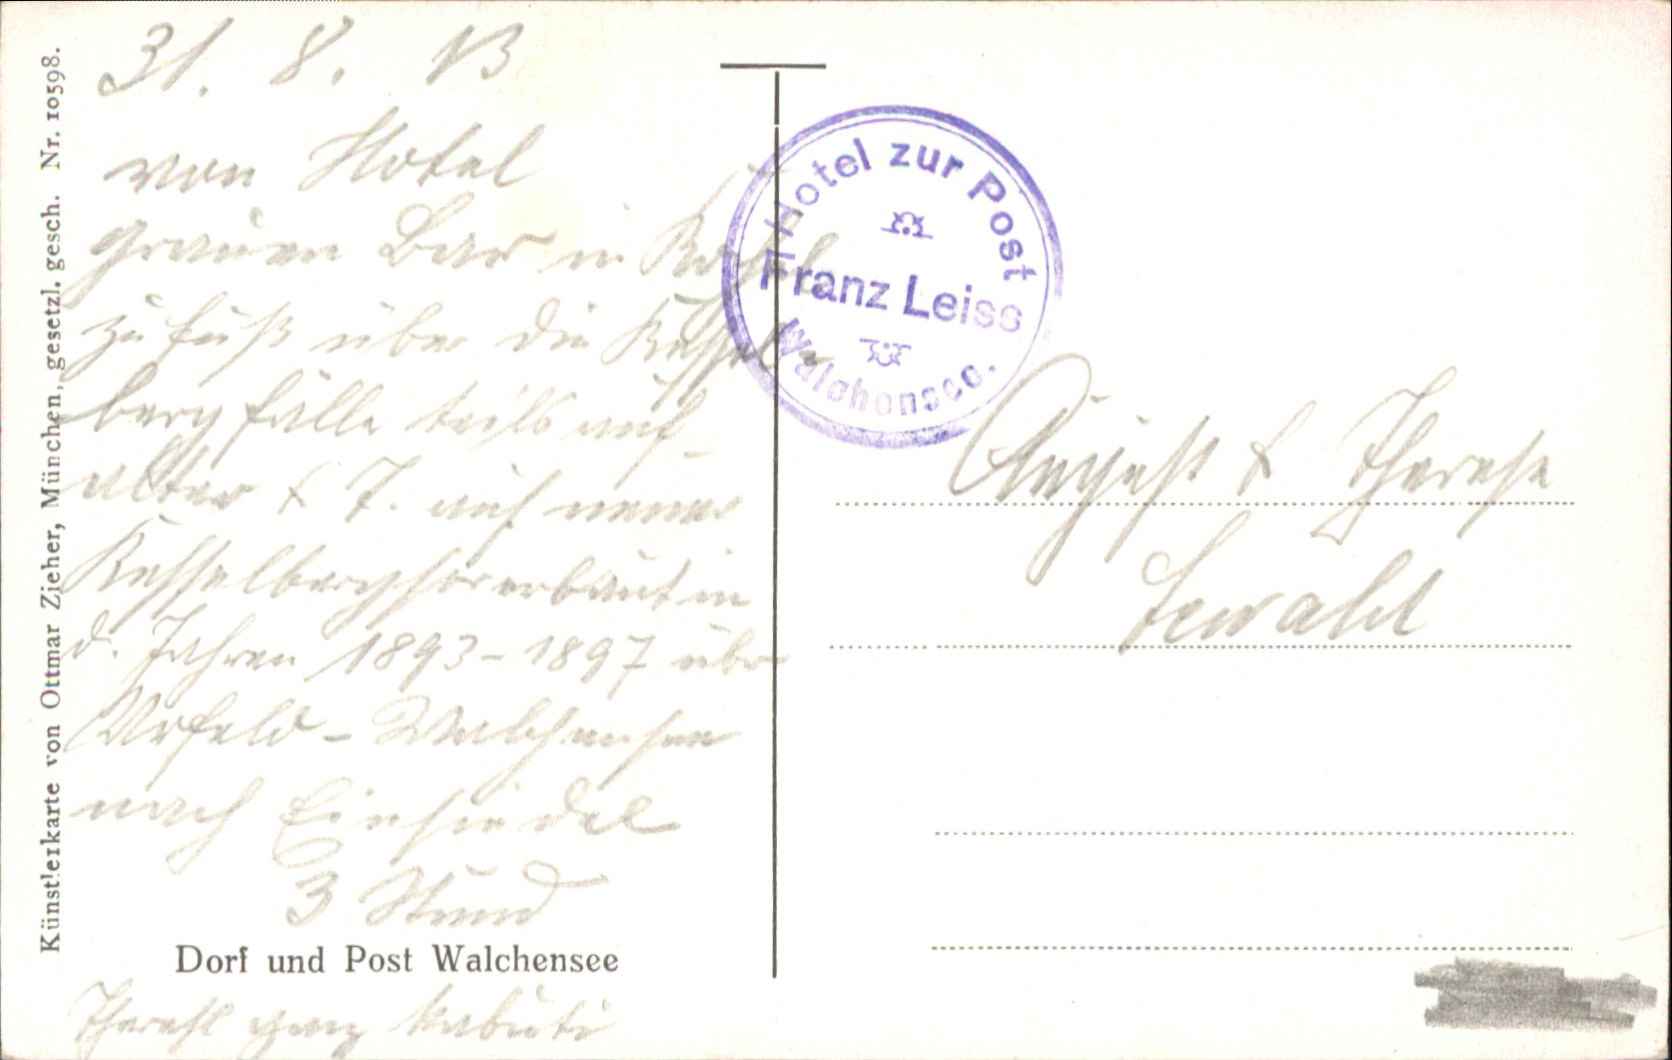 31. 8. 13
von Hotel
grauen Bär in Kochel
zu Fuß über die Kessel-
bergfälle teils auf
alter & T. auf neuer
Kesselbergstr erbaut in
d. Jahren 1893-1897 über
Urfeld - Walchensee
nach Einsiedel
3 Stund
Dorf und Post Walchensee
Theresl ganz kaputi
Künstlerkarte von Ottmar Zieher, München, gesetzl. gesch. Nr. 10598.
Hotel zur Post
Franz Leiss
Walchensee.
August & Therese
Ewald